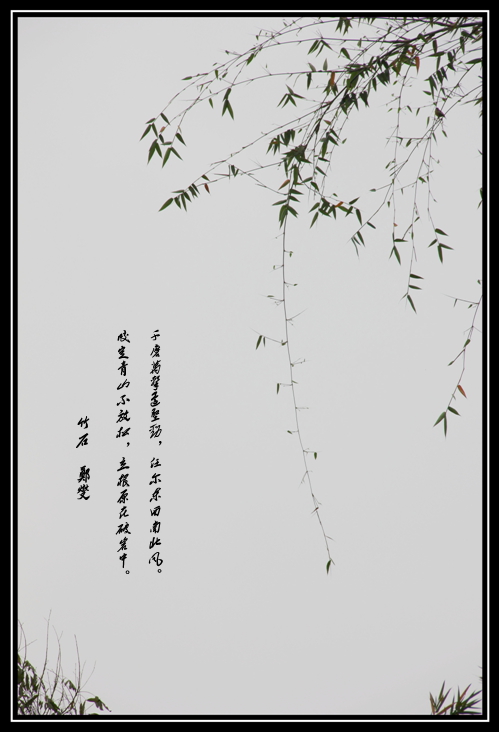 竹石 鄭燮
咬定青山不放松，立根原在破岩中。
千磨萬擊還堅勁，任尔东西南北风。